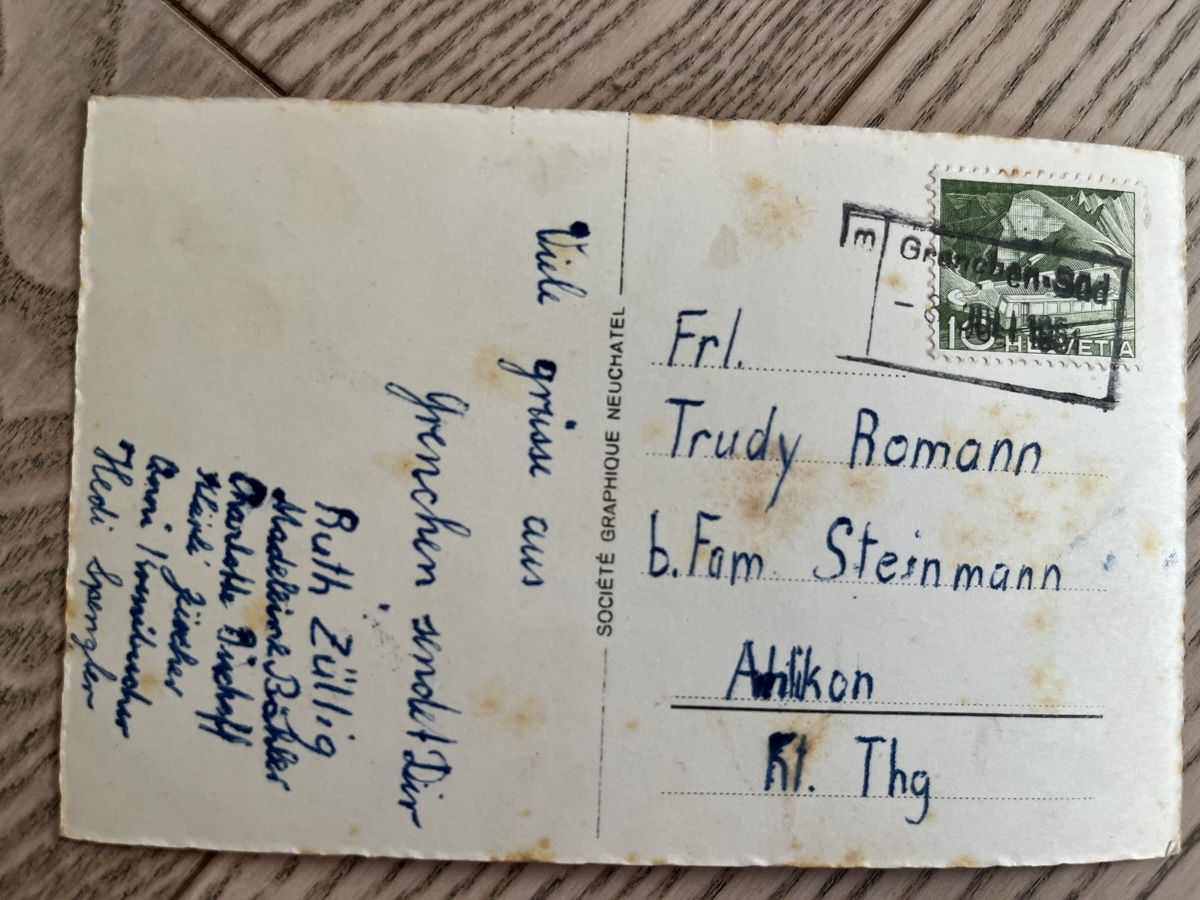 Viele grüsse aus
Grenchen sendet Dir
Ruth Züllig
Madeleine Bähler
Charlotte Bischoff
Klärli Zürcher
Anni
Hedi Spengler
SOCIÉTÉ GRAPHIQUE NEUCHATEL
Grenchen-Süd
JULI 1951
10 HELVETIA
Frl.
Trudy Romann
b. Fam. Steinmann
Kt. Thg